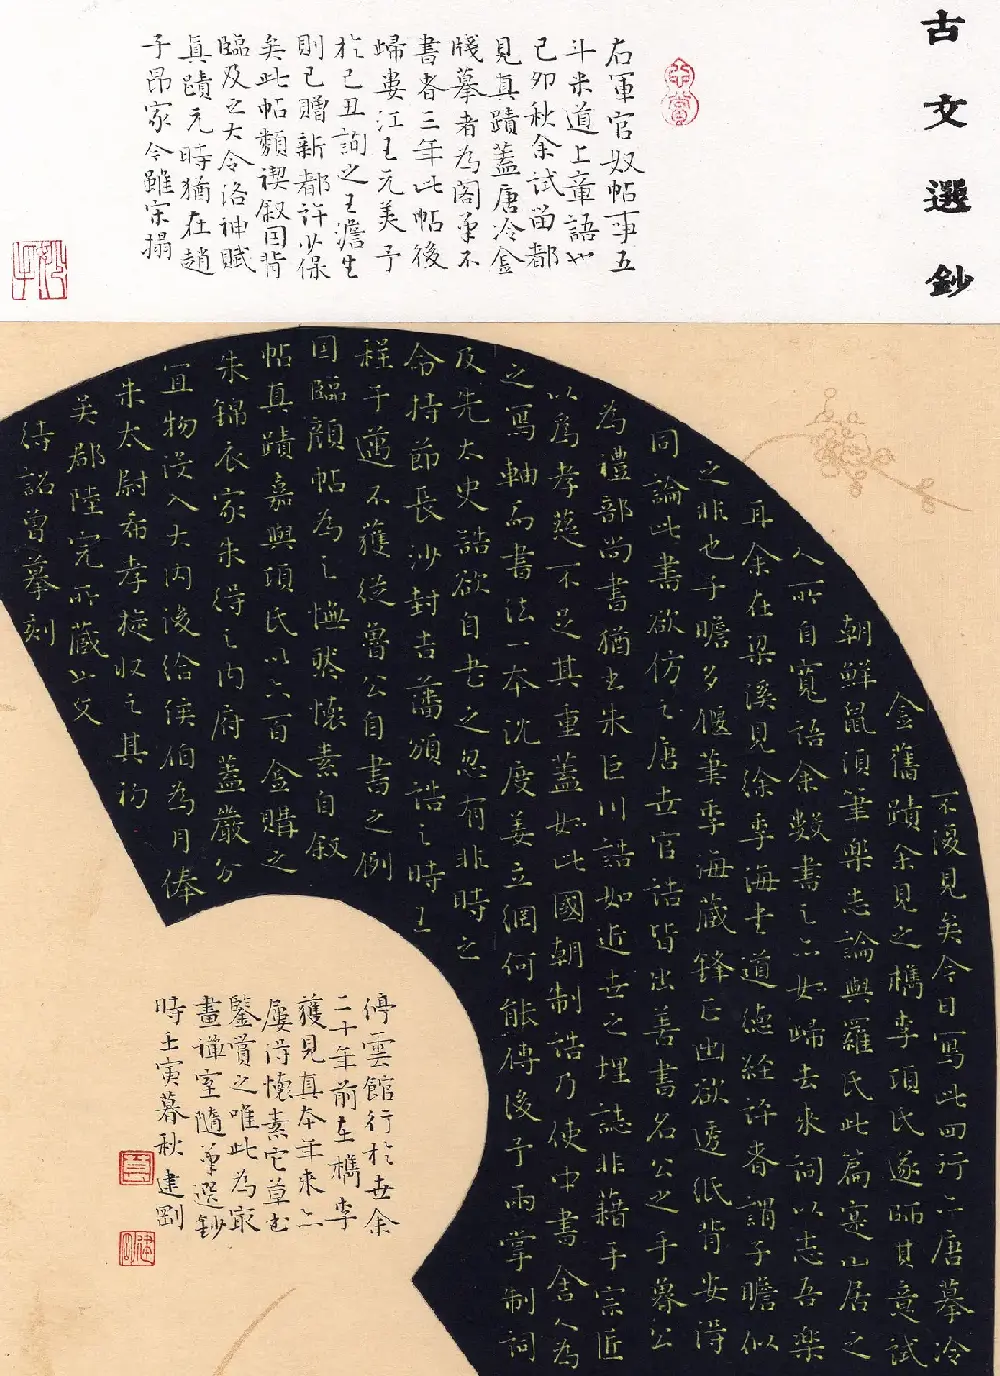 古文選鈔
右軍官奴帖事五
斗米道上章語也
己卯秋余試留都
見真蹟蓋唐冷金
牋摹者為閣筆不
書者三年此帖後
歸婁江王元美予
於己丑詢之王澹生
則已贈新都許少保
矣此帖類禊叙因背
臨及之大令洛神賦
真蹟元時猶在趙
子昂家今雖宋搨
不復見矣今日寫此四行亦唐摹冷
金舊蹟余見之檇李項氏遂師其意試
朝鮮鼠須筆樂志論與羅氏此篇寔山居之
人所自寬語余數書之亦如歸去來詞以志吾樂
耳余在梁溪見徐季海書道德經評者謂子瞻似
之非也子瞻多偃筆季海藏鋒正幽欲透紙背安得
同論此書欲仿之唐世官誥皆出善書名公之手魯公
為禮部尚書猶書朱巨川誥如近世之埋誌非藉手宗匠
以為孝慈不足其重蓋如此國朝制誥乃使中書舍人為
之寫軸而書法一本沈度姜立綱何能傳後予兩掌制詞
及先太史誥欲自書之忽有非時之
命持節長沙封吉藩頒誥之時王
程于邁不獲從魯公自書之例
因臨顏帖為之憮然懷素自叙
帖真蹟嘉興項氏以六百金購之
朱錦衣家朱得之內府蓋嚴分
宜物沒入大內後給侯伯為月俸
朱太尉希孝旋收之其初
吳郡陸完所藏也文
待詔曾摹刻
停雲館行於世余
二十年前在檇李
獲見真本年來亦
屢得懷素它草書
鑒賞之唯此為最
畫禪室隨筆選鈔
時壬寅暮秋建剛